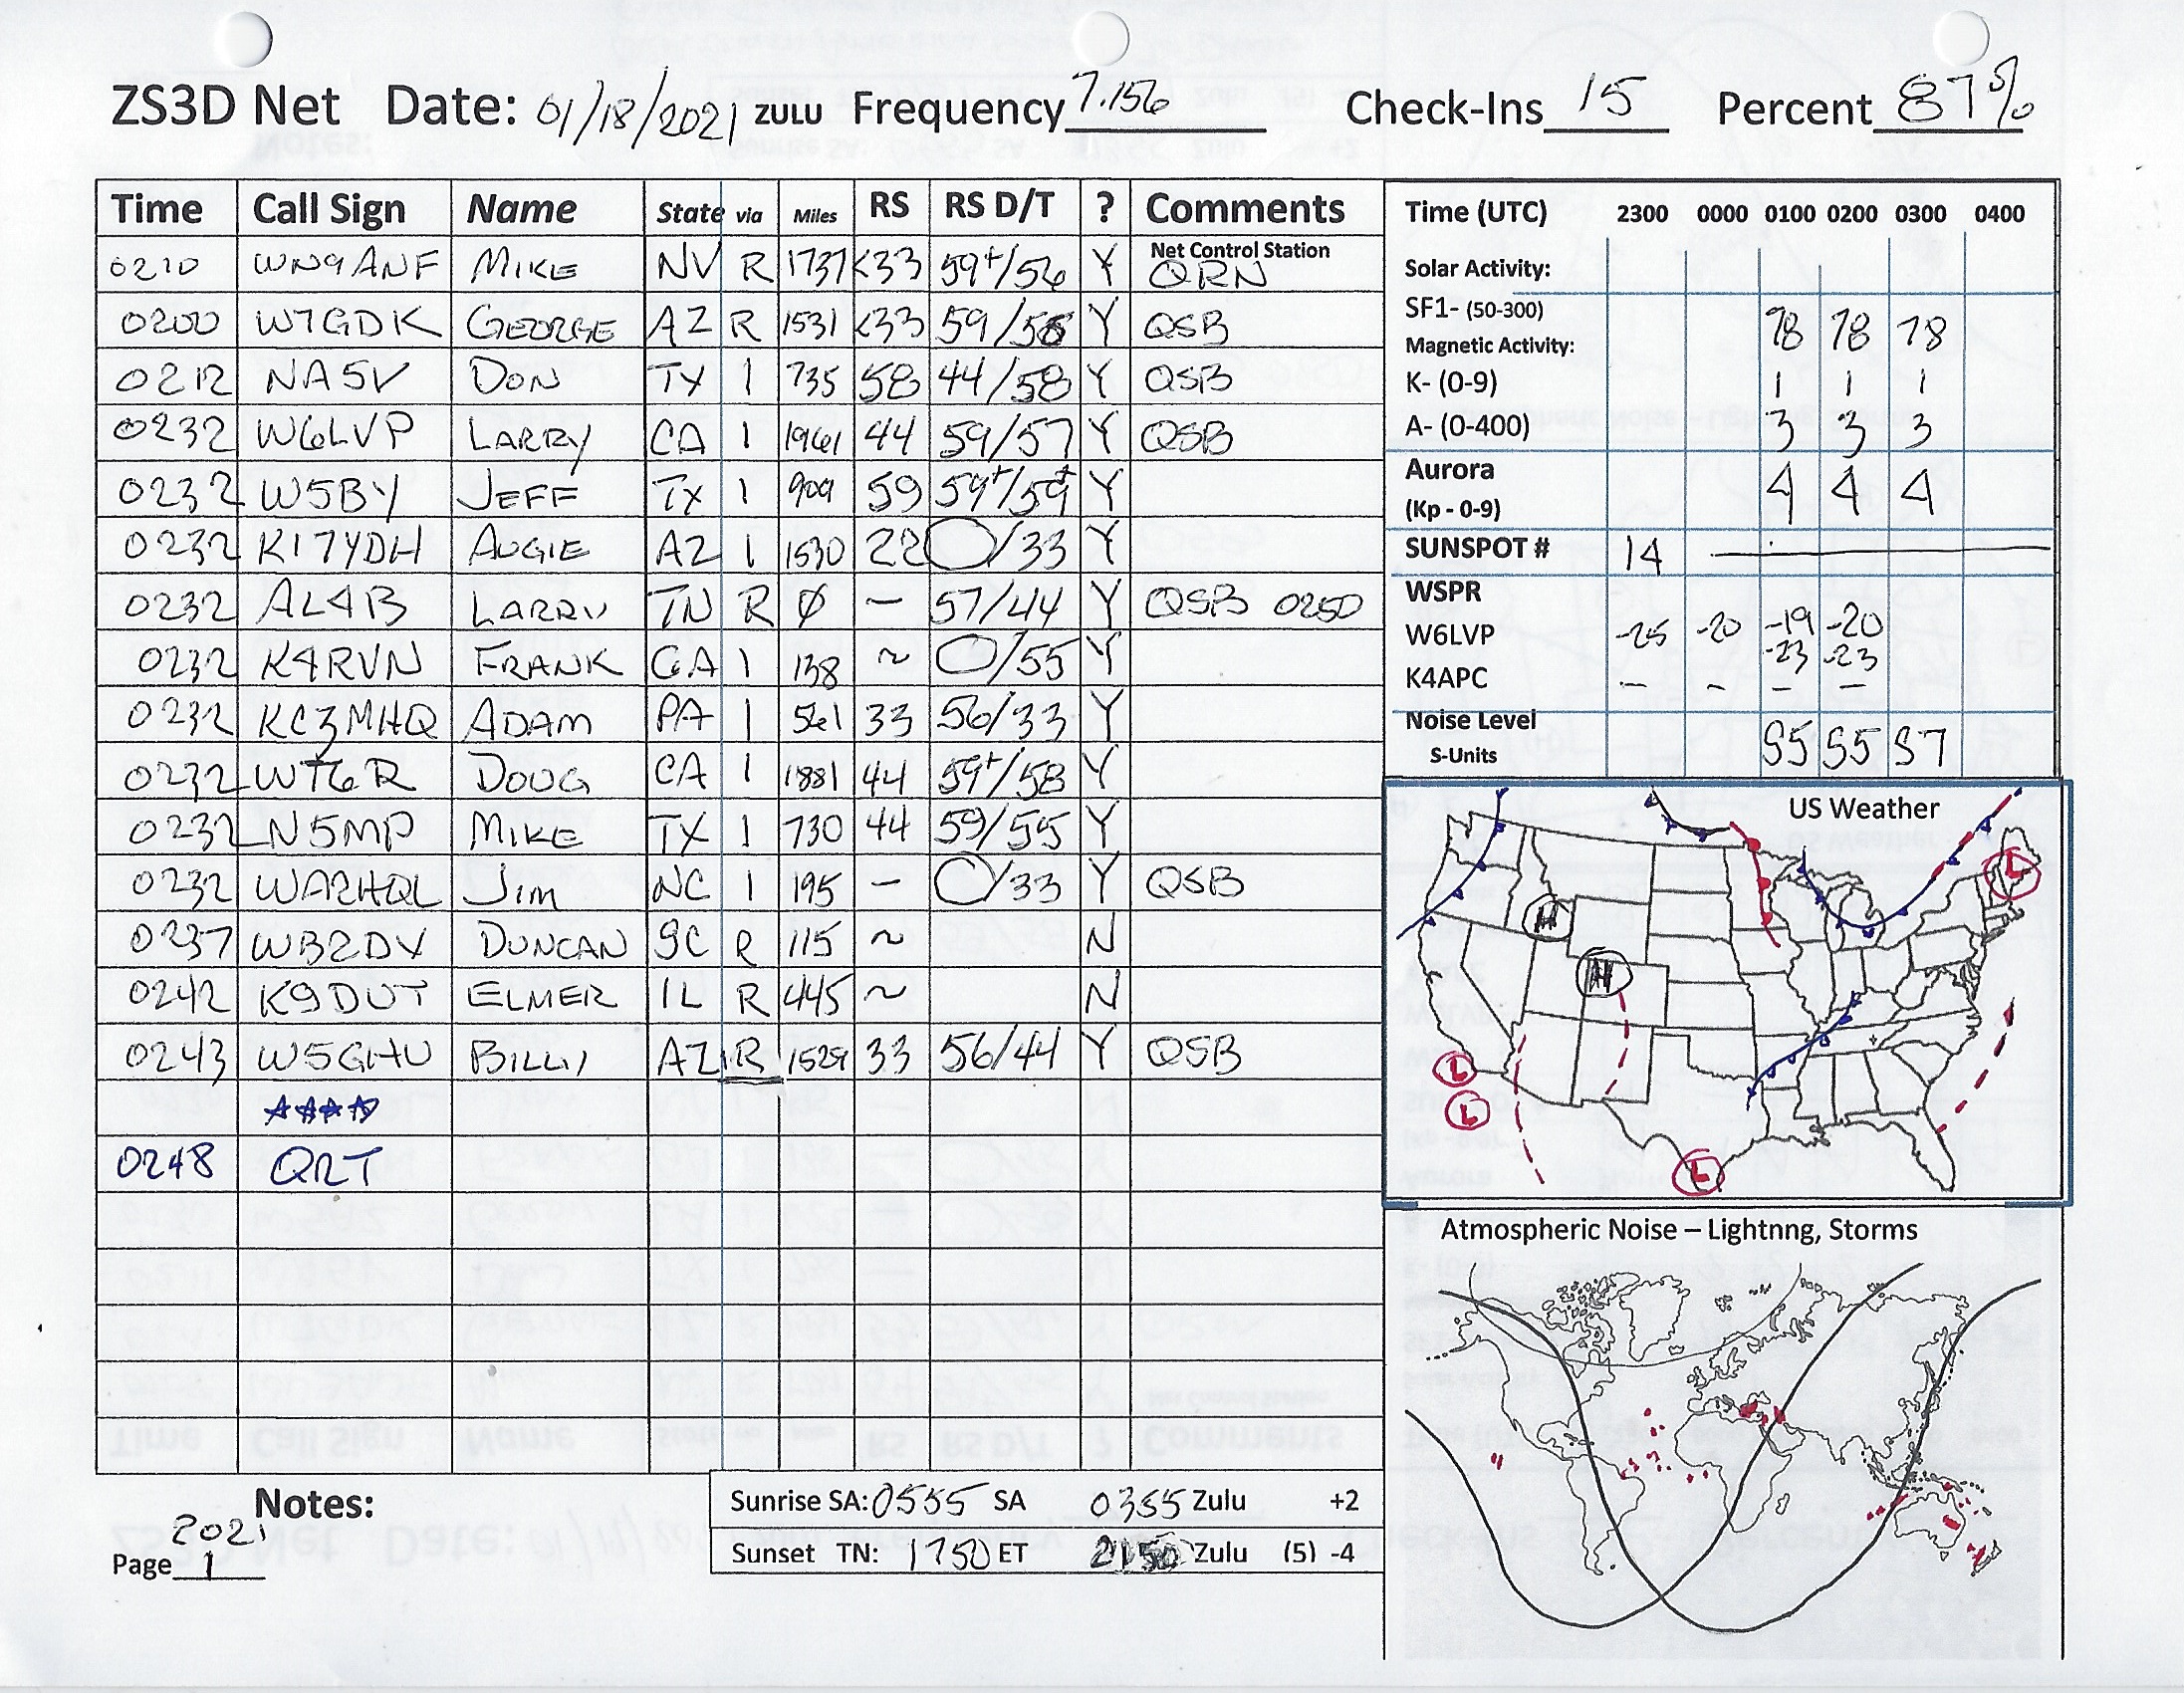 ZS3D Net Date: 01/18/2021 ZULU Frequency 7.156 Check-Ins 15 Percent 87%
Time Call Sign Name State via Miles RS RS D/T ? Comments
0210 WN9ANF MIKE NV R 1737 <33 59+/56 Y Net Control Station QRN
0200 W7GDK GEORGE AZ R 1531 <33 59/56 Y QSB
0212 NA5V DON TX 1 735 58 44/58 Y QSB
0232 W6LVP LARRY CA 1 1961 44 59/57 Y QSB
0232 W5BY JEFF TX 1 909 59 59+/59+ Y
0232 KI7YDH AUGIE AZ 1 1530 22 0/33 Y
0232 AL4B LARRY TN R Ø – 57/44 Y QSB 0250
0232 K4RVN FRANK GA 1 138 ~ 0/55 Y
0232 KC3MHQ ADAM PA 1 561 33 56/33 Y
0232 WT6R DOUG CA 1 1881 44 59+/58 Y
0232 N5MP MIKE TX 1 730 44 59/55 Y
0232 WA2HQL Jim NC 1 195 – 0/33 Y QSB
0237 WB2DX DUNCAN SC R 115 ~ N
0242 K9DUT ELMER IL R 445 ~ N
0243 W5GHU BILLY AZ R 1529 33 56/44 Y QSB
☆☆☆☆
0248 QRT
Notes:
2021
Page 1
Sunrise SA: 0555 SA 0355 Zulu +2
Sunset TN: 1750 ET 2150 Zulu (5) -4
Time (UTC) 2300 0000 0100 0200 0300 0400
Solar Activity:
SF1- (50-300) 78 78 78
Magnetic Activity:
K- (0-9) 1 1 1
A- (0-400) 3 3 3
Aurora
(Kp - 0-9) 4 4 4
SUNSPOT # 14
WSPR
W6LVP -25 -20 -19 -20
-23 -23
K4APC – – – –
Noise Level
S-Units S5 S5 S7
US Weather
L
H
H
L
L
L
Atmospheric Noise – Lightnng, Storms